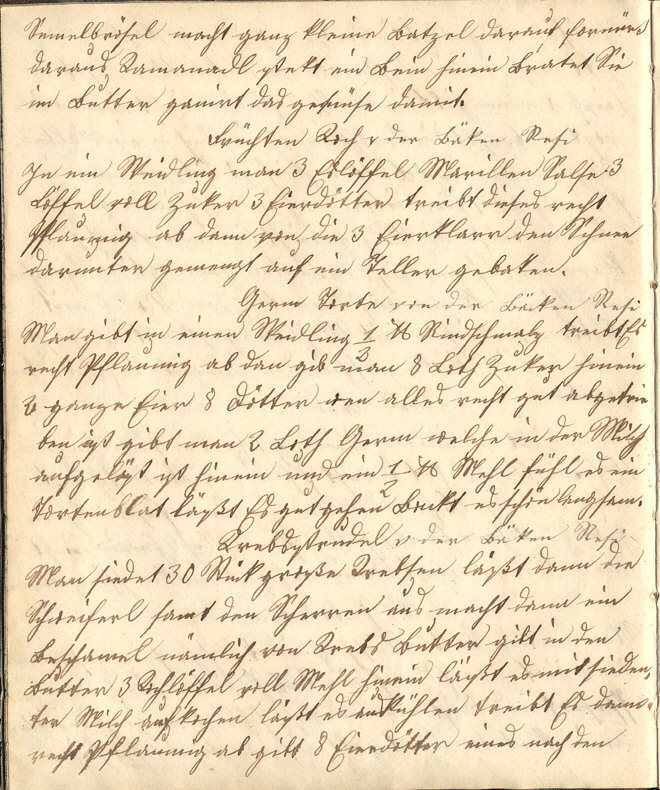 Semelbrösel macht ganz kleine Batzel darauf formirt
daraus Ramanadl stekt ein Bein hinein Bratet Sie
im Butter garnirt das gemüse damit.
Früchten Koch v der Bäken Resi
In ein Weidling man 3 Eslöffel Marillen Salse 3
Löffel voll Zuker 3 Eierdötter treibt dieses recht
Pflaumig ab dann von die 3 Eierklarr den Schnee
darunter gemengt auf ein Teller gebaken.
Germ Torte von der Bäcken Resi
Man gibt in einen Weidling 1/3 ℔ Rindschmalz treibt Es
recht Pflaumig ab dan gib man 8 Loth Zuker hinein
3 ganze Eier 8 Dötter wen alles recht gut abgetrie
ben ist gibt man 2 Loth Germ welche in der Milch
aufgelößt ist hinein und ein 1/2 ℔ Mehl fühl es ein
Tortenblat läßt Es gut gehen Bakt es schön langsam.
Krebsstrudel v der Bäken Resi
Man siedet 30 Stük große Krebsen läßt dann die
Schweiferl samt den Scherren aus macht dann ein
Beschamel nämlich von Krebs Butter gibt in den
Butter 3 Kochlöffel voll Mehl hinein läßt es mit sieden,
ter Milch aufkochen läßt es auskühlen treibt Es dann
recht Pflaumig ab gibt 8 Eierdötter eines nach den